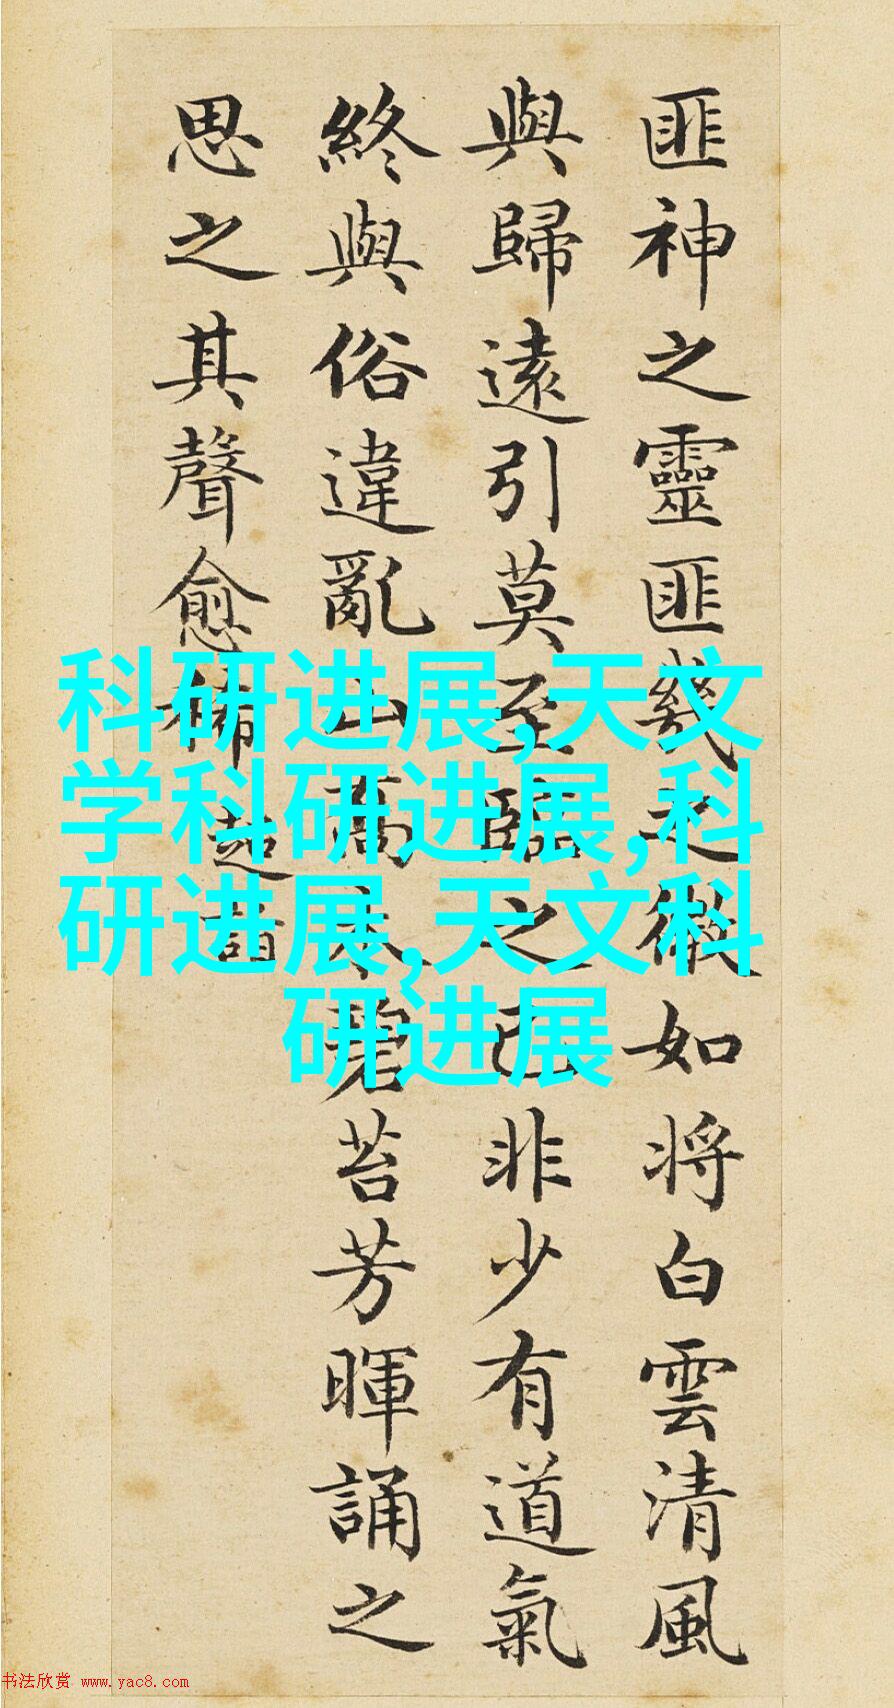 匪神之靈匪幾之微如将白雲清風
與歸遠引莫至臨之已非少有道氣
終與俗違亂山喬木碧苔芳暉誦之
思之其聲愈稀
超詣
科研进展,天文
学科研进展,科
研进展,天文科
研进展
书法欣赏 www.yac8.com